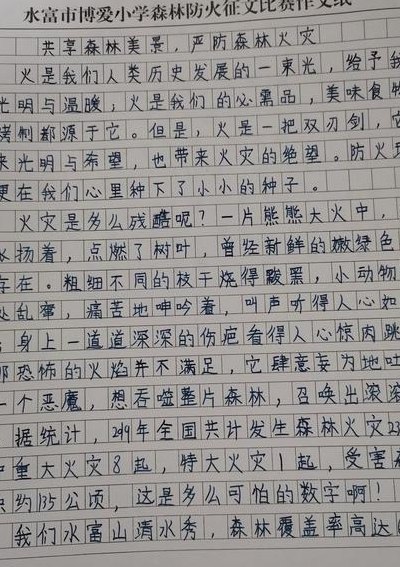 水富市博爱小学森林防火征文比赛作文纸
共享森林美景，严防森林火灾
火是我们人类历史发展的一束光，给予我
光明与温暖；火是我们的必需品，美味食物
烤制都源于它。但是，火是一把双刃剑，它
来光明与希望，也带来火灾的绝望。防火
便在我们心里种下了小小的种子。
火灾是多么残酷呢？一片熊熊大火中，
扬着，点燃了树叶，曾经新鲜的嫩绿色
存在。粗细不同的枝干烧得黢黑，小动物
处乱窜，痛苦地呻吟着，叫声听得人心如
；身上一道道深深的伤疤看得人心惊肉跳
那恐怖的火焰并不满足，它肆意妄为地吐
一个恶魔，想吞噬整片森林，召唤出滚滚
据统计，2019年全国共计发生森林火灾23
中重大火灾8起，特大火灾1起，受害森
积约135公顷，这是多么可怕的数字啊！
我们水富山清水秀，森林覆盖率高达